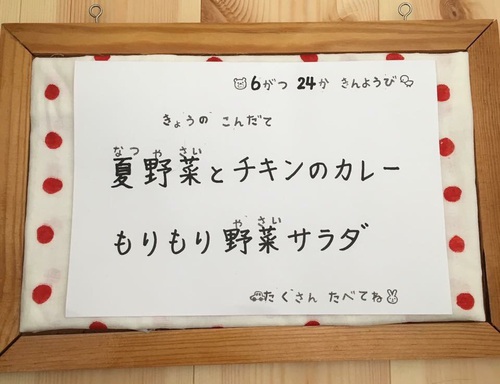 6がつ 24か きんようび
きょうの こんだて
なつ や さい
夏野菜とチキンのカレー
や さい
もりもり野菜サラダ
たくさん たべてね